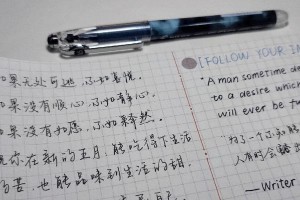 如果无处可逃，不如喜悦。
如果没有顺心，不如静心。
如果没有如愿，不如释然。
你在新的五月，能吃得下生活
的苦，也能品味到生活的甜。
[FOLLOW YOUR
"A man sometime
to a desire which
will ever be
人有时会
— Writer